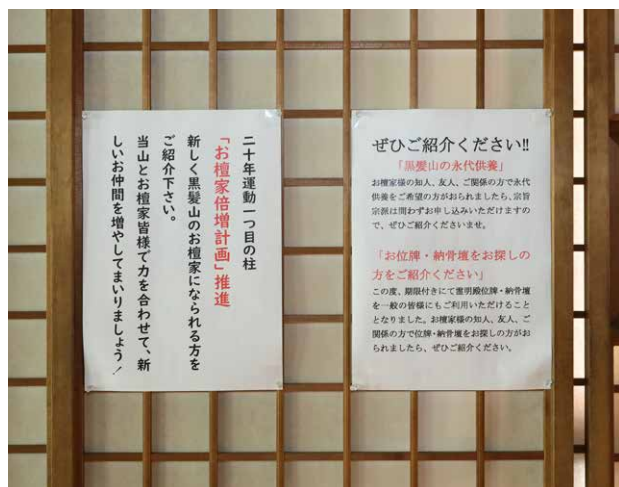 二十年運動一つ目の柱
「お檀家倍増計画」推進
新しく黒髪山のお檀家になられる方を
ご紹介下さい。
当山とお檀家皆様で力を合わせて、新
しいお仲間を増やしてまいりましょう!
ぜひご紹介ください!!
「黒髪山の永代供養」
お檀家様の知人、友人、ご関係の方で永代
供養をご希望の方がおられましたら、宗旨
宗派は問わずお申し込みいただけますの
で、ぜひご紹介くださいませ。
「お位牌・納骨壇をお探しの
方をご紹介ください」
この度、期限付きにて霊明殿位牌・納骨壇
を一般の皆様にもご利用いただけること
となりました。お檀家様の知人、友人、ご
関係の方で位牌・納骨壇をお探しの方がお
られましたら、ぜひご紹介ください。